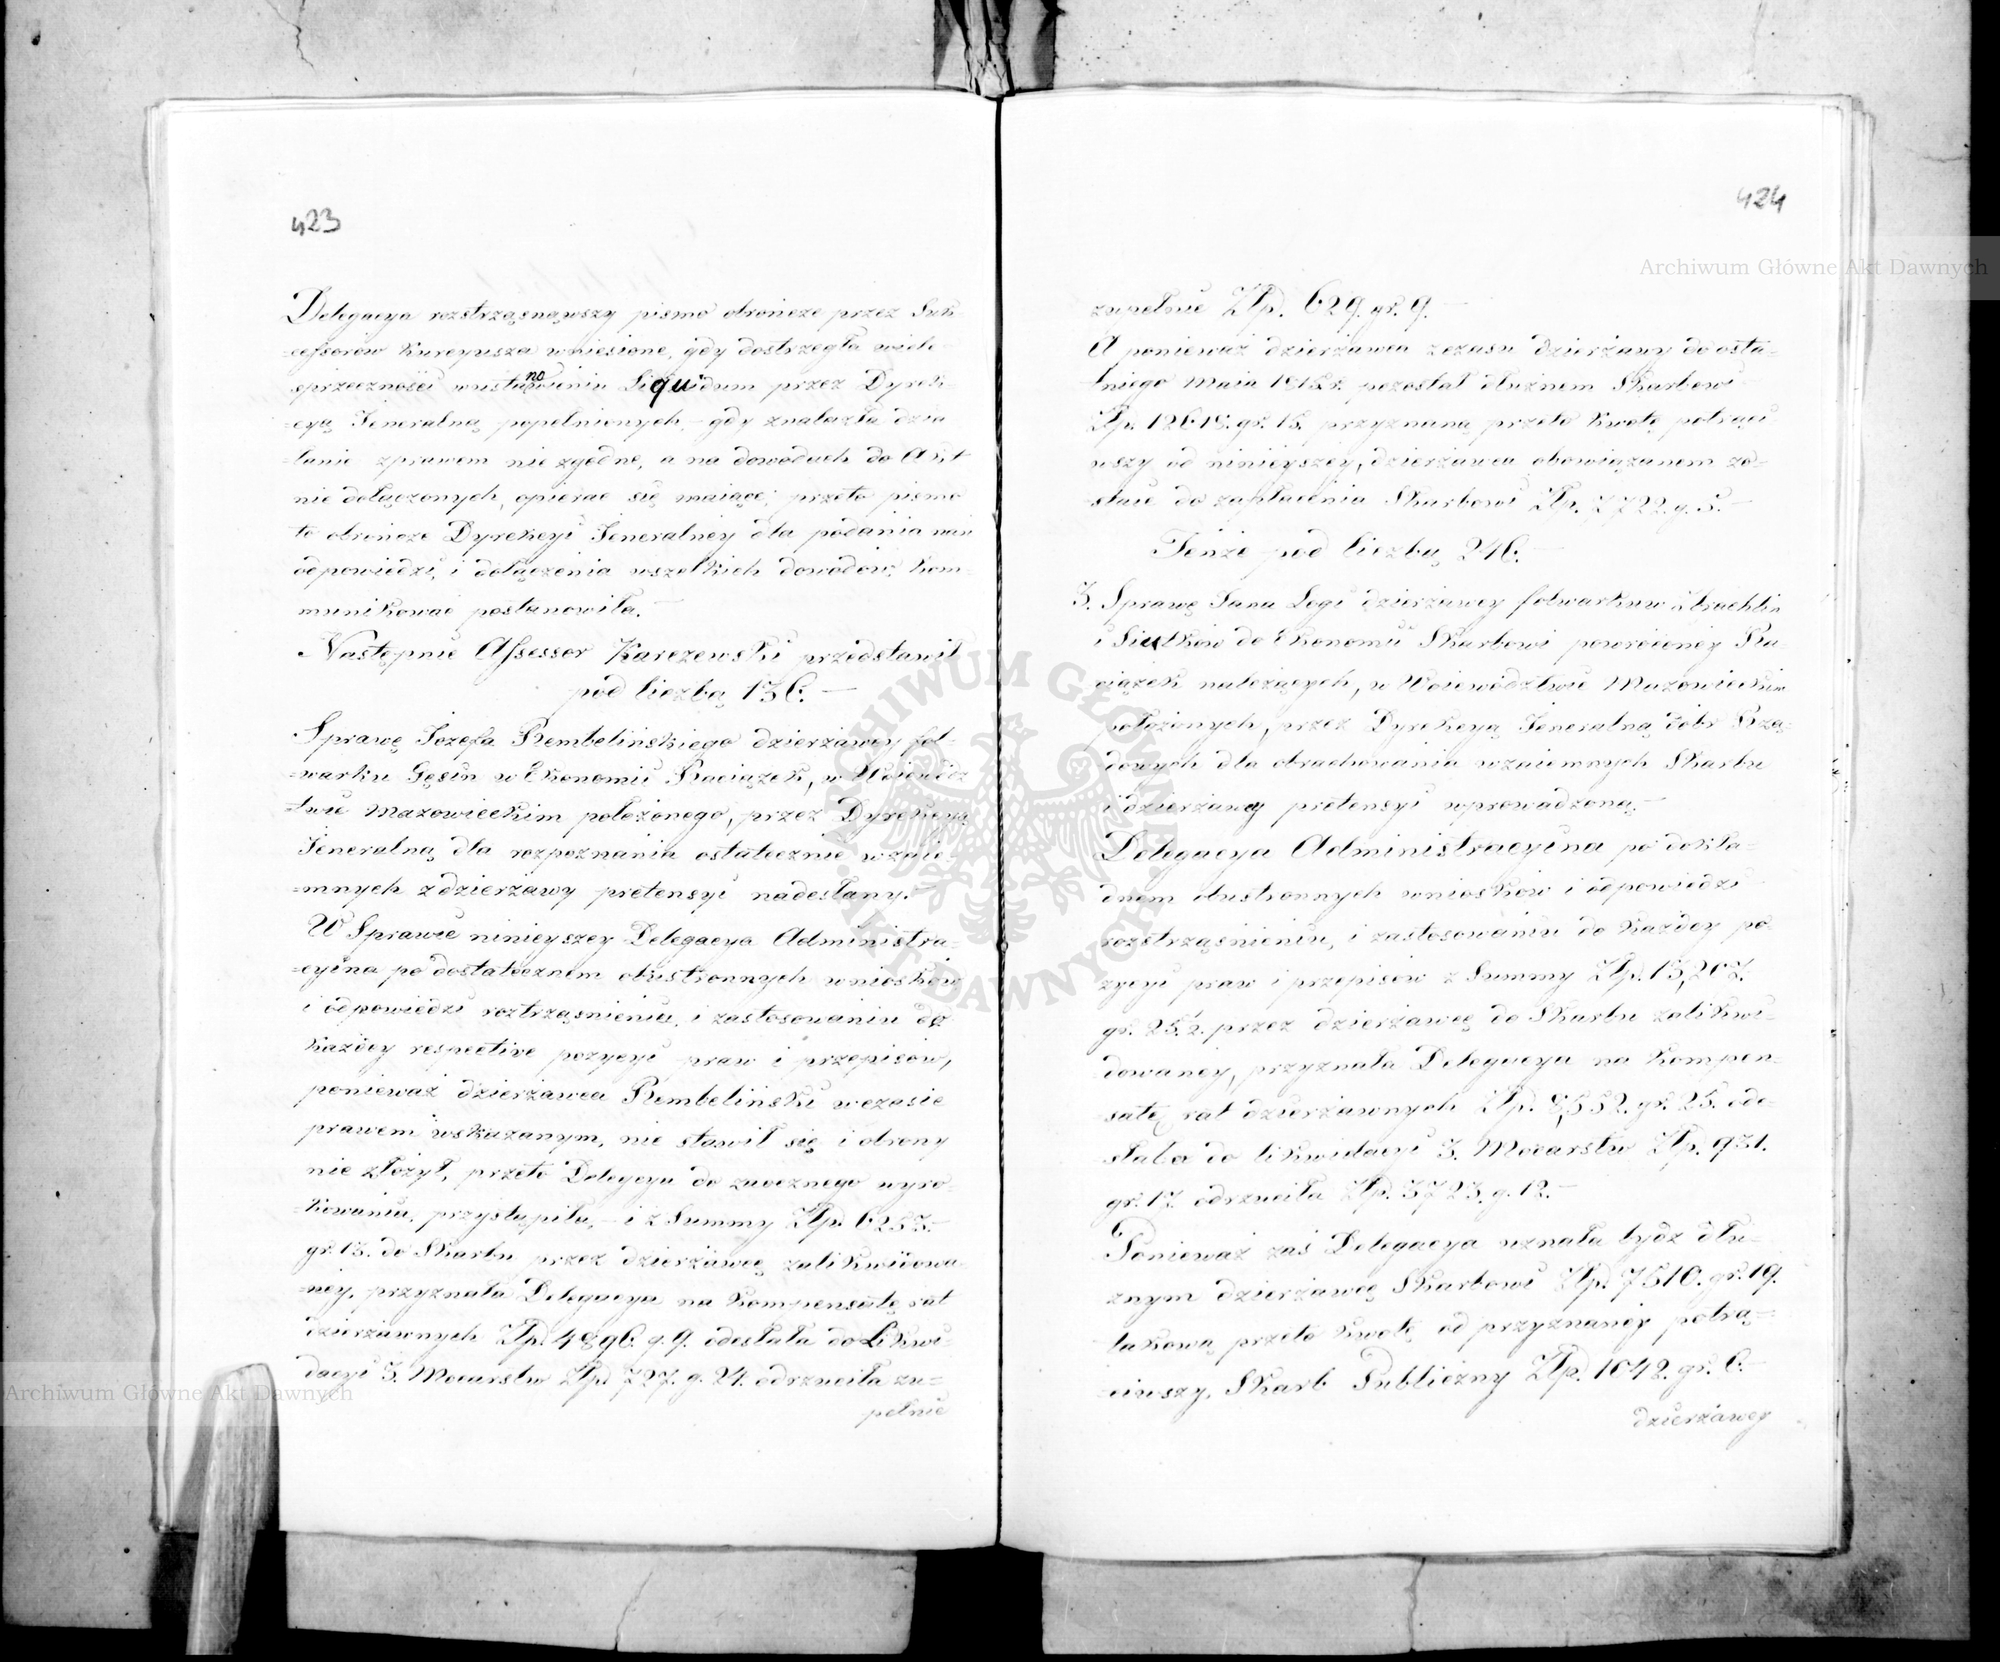 423
Delegacya rozstrząsnąwszy pismo obroncze przez Suk-
=cessorów wniesione, gdy dostrzegła wiele
sprzeczności w ustanowieniu Liquidum przez Dyrek
=cyą Jeneralną popełnionych, - gdy znalazła dzia
=łanie z prawem nie zgodne, a na dowodach do Akt
nie dołączonych, opierać się maiące; przeto pismo
to obroncze Dyrekcyi Jeneralney dla podania nań
odpowiedzi, i dołączenia wszelkich dowodów, kom-
munikować postanowiła. -
Następnie Assessor Karczewski przedstawił
pod liczbą 136. -
Sprawę Jozefa Rembelińskiego dzierżawcy fol-
=warku Gęsin w Ekonomii Raciążek, w Wojewódz
=twie Mazowieckim położonego, przez Dyrekcyą
Jeneralną dla rozpoznania ostatecznie wzaie-
=mnych z dzierżawy pretensyi nadesłany. -
W Sprawie ninieyszey Delegacya Administra-
=cyina po dostatecznem obustronnych wniosków
i odpowiedzi roztrząsnieniu, i zastosowaniu do
każdey respective pozycyi praw i przepisów,
ponieważ dzierżawca Rembeliński w czasie
prawem wskazanym, nie stawił się i obrony
nie złożył, przeto Delegacya do zaocznego wyro-
=kowania, przystąpiła, - i z Summy Złp. 6253.
gr. 13. do Skarbu przez dzierżawcę zalikwidowa-
=ney, przyznała Delegacya na kompensatę rat
dzierżawnych Złp. 4896. g. 9. odesłała do Likwi-
dacyi 3. Mocarstw Złp. 727. g. 24. odrzuciła zu=
pełnie
424
zupełnie Złp. 629. gr. 9. -
A ponieważ dzierżawca z czasu dzierżawy do osta-
tniego Maia pozostał dłużnem Skarbowi
Złp. 12618. gr. 15. przyznaną przeto kwotę potrąci
wszy od ninieyszey, dzierżawca obowiązanem zo-
staie do zapłacenia Skarbowi Złp. 7722. g. 5. -
Tenże pod liczbą 246. -
3. Sprawę Jana Legi dzierżawcy folwarków Zbrachlin
i Siutków do Ekonomii Skarbowi powróconey Ra-
ciążek należących, w Woiewództwie Mazowieckim
położonych, przez Dyrekcyą Jeneralną dóbr Rzą-
dowych dla obrachowania wzaiemnych Skarbu
i dzierżawcy pretensyi wprowadzoną. -
Delegacya Administracyina po dokła-
dnem obustronnych wniosków i odpowiedzi
rozstrząsnieniu, i zastosowaniu do każdey po-
zycyi praw i przepisów z Summy Złp. 15,207.
gr. 25.½. przez dzierżawcę do Skarbu zalikwi-
dowaney, przyznała Delegacya na kompen-
satę rat dzierżawnych Złp. 8,552. gr. 25. ode-
słała do likwidacyi 3. Mocarstw Złp. 931.
gr. 17. odrzuciła Złp. 5723. g. 12. -
Ponieważ zaś Delegacya uznała bydz dłu-
znym dzierżawcę Skarbowi Złp. 7510. gr. 19.
takową przeto kwotę od przyznaney potrą=
ciwszy, Skarb Publiczny Złp. 1042. gr. 6.
dzierżawcy
Archiwum Główne Akt Dawnych
Archiwum Główne Akt Dawnych
ARCHIWUM GŁÓWNE AKT DAWNYCH